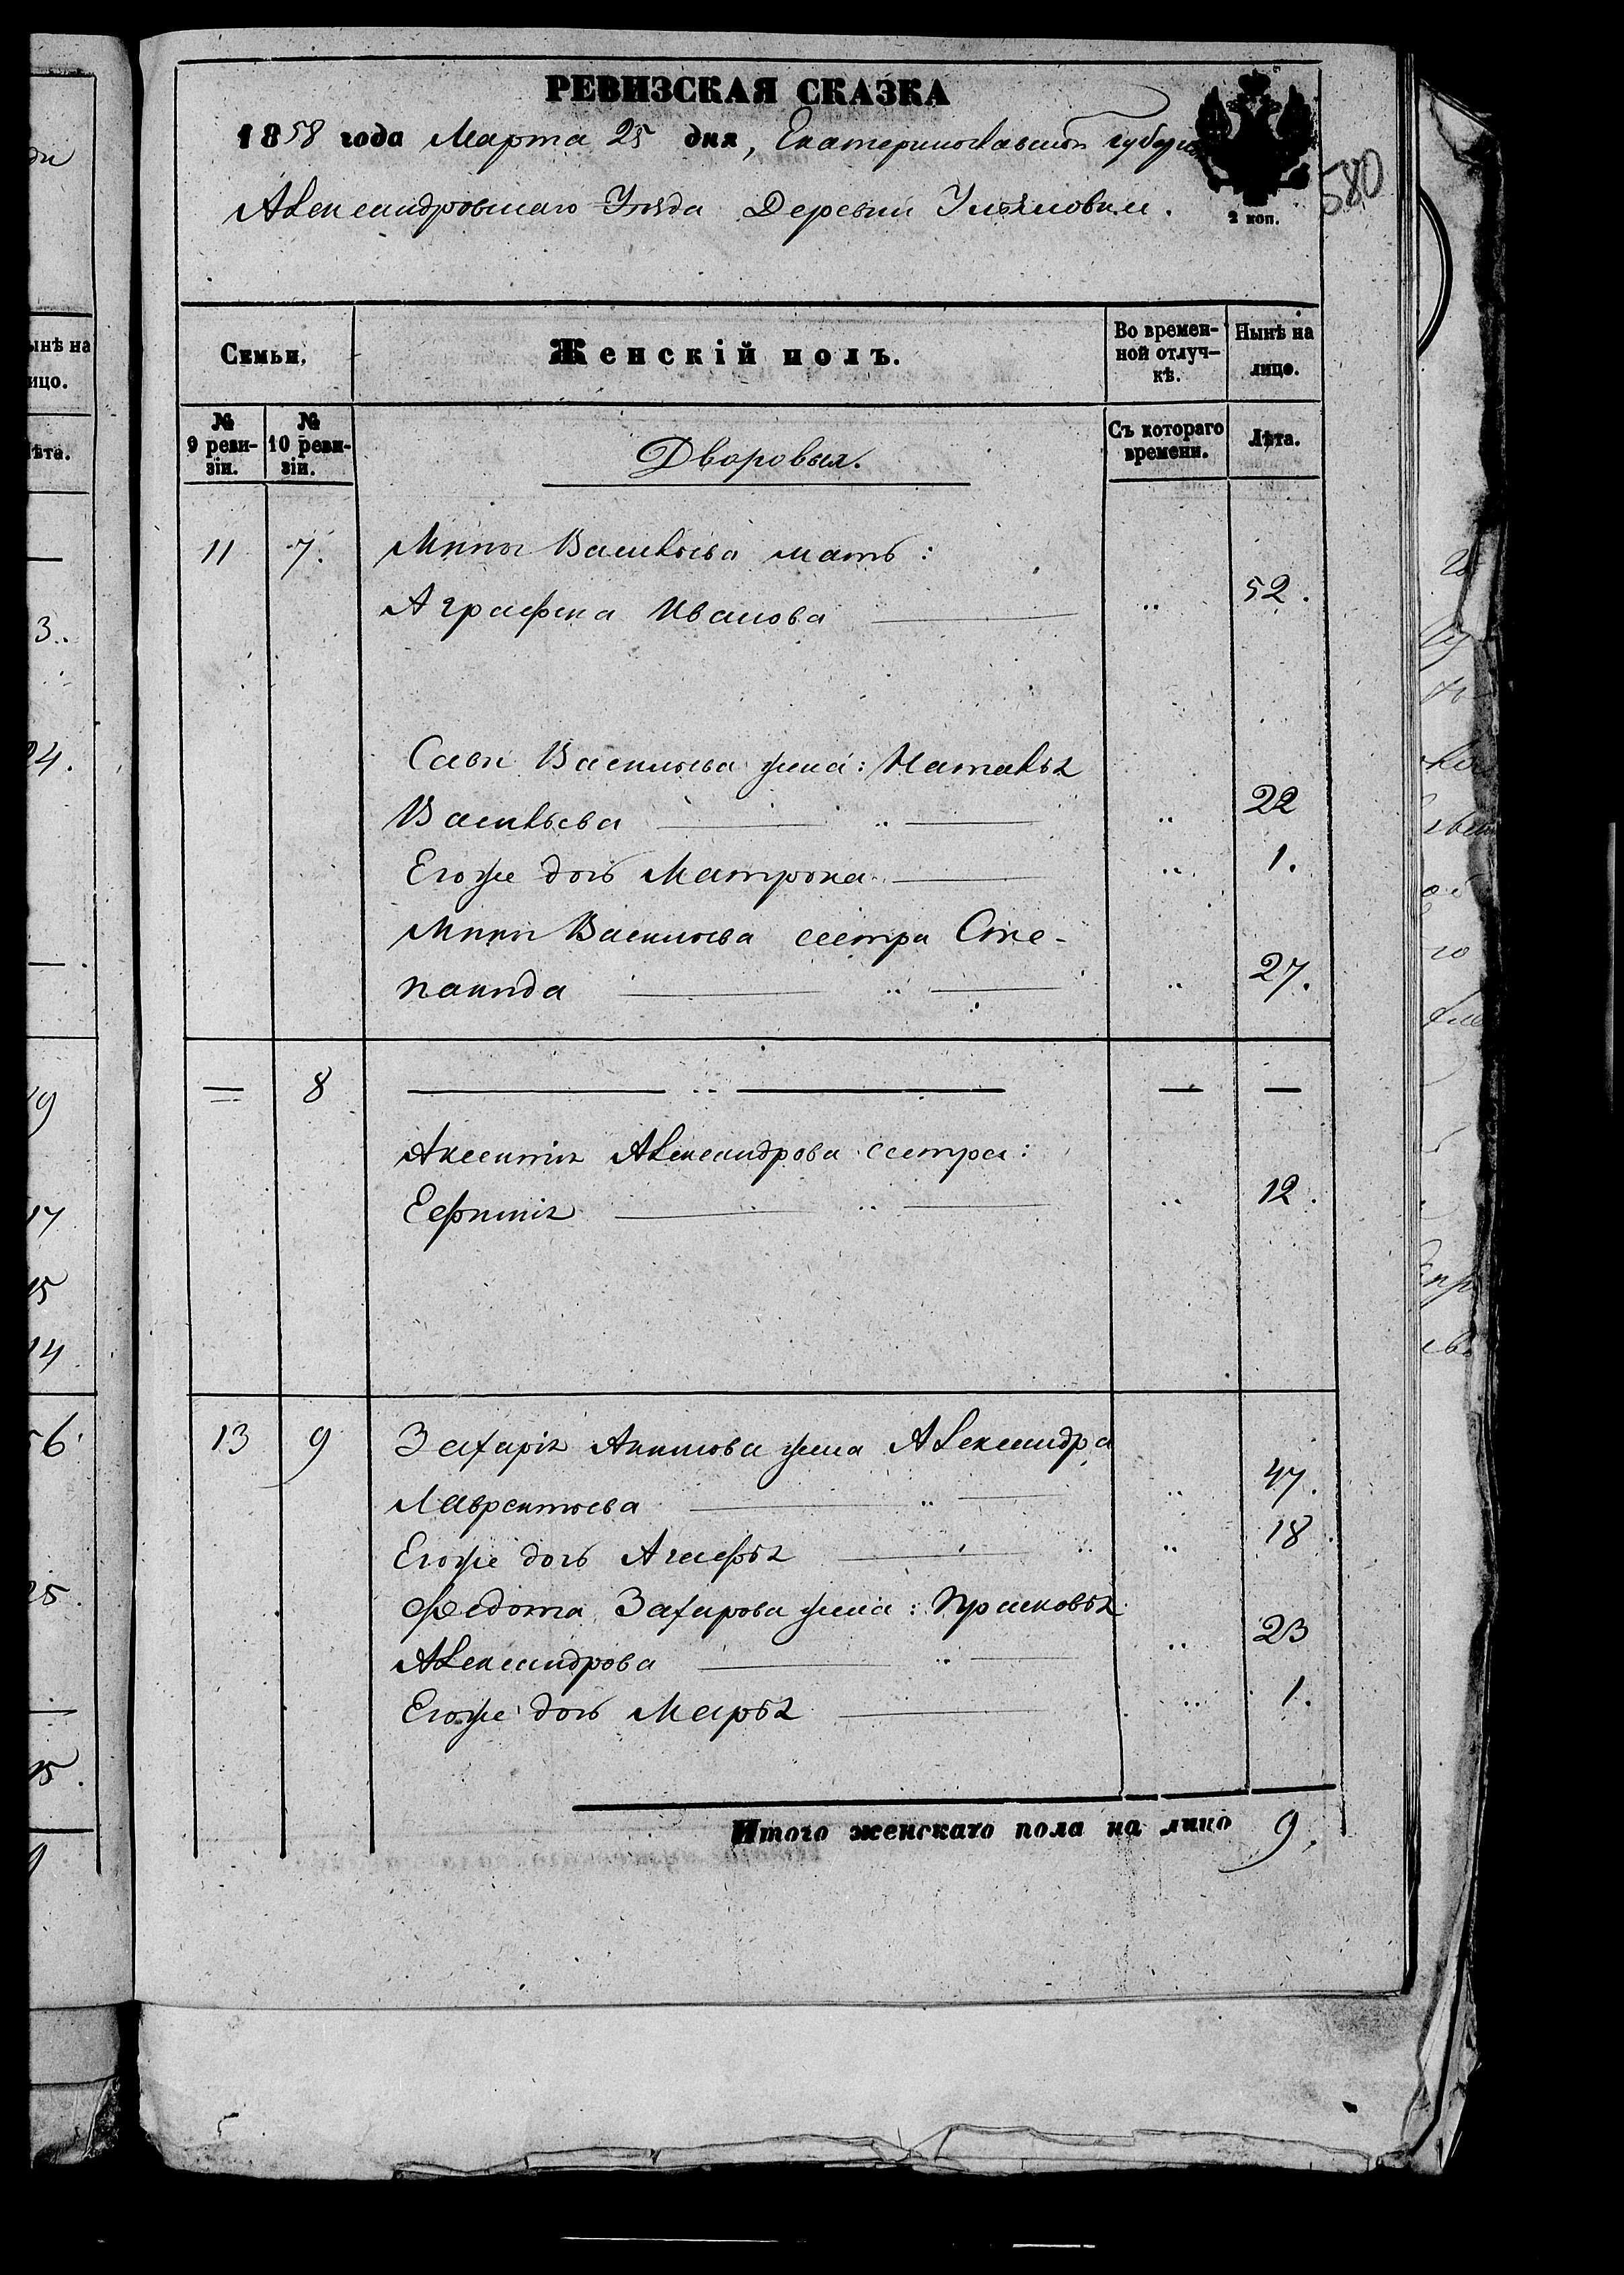 РЕВИЗСКАЯ СКАЗКА
1858 года Марта 25 дня, Екатеринославской Губерніи
Александровскаго Уѣзда Деревни Ульяновки.
2 коп.
580
Семьи. Женскій полъ. Во времен-ной отлуч-кѣ. Нынѣ на лицо.
№ 9 реви-зіи. № 10 реви-зіи. Дворовыя. Съ котораго времени. Лѣта.
11 7. Мины Васильева мать:
Аграфена Иванова „ 52.
Савы Васильева жена: Наталья
Васильева „ „ 22
Егоже дочь Матрона „ 1.
Мины Васильева сестра Сте-
панида „ „ 27.
— 8 — „ — — —
Аксентія Александрова сестра:
Ефимія „ „ 12.
13 9 Захарія Акимова жена Александра
Лаврентьева „ „ 47.
Егоже дочь Агафья „ „ 18.
Федота Захарова жена: Прасковья
Александрова „ „ 23
Егоже дочь Марья „ 1.
Итого женскаго пола на лицо 9.